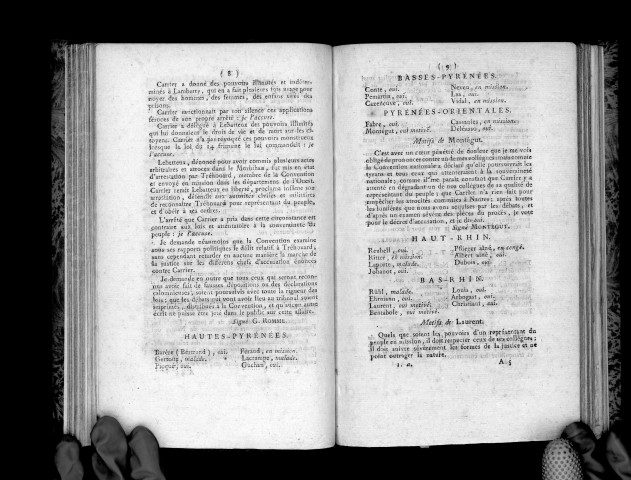 ( 8 )
Carrier a donné des pouvoirs illimités et indéter-
minés à Lamberty, qui en a fait plusieurs fois usage pour
noyer des hommes, des femmes, des enfans tirés des
prisons.
Carrier sanctionnait par son silence ces applications
féroces de son propre arrêté : je l'accuse.
Carrier a délégué à Lebatteux des pouvoirs illimités
qui lui donnaient le droit de vie et de mort sur les ci-
toyens. Carrier n'a pas révoqué ces pouvoirs monstrueux
lorsque la loi du 14 frimaire le lui commandait : je
l'accuse.
Lebatteux, dénoncé pour avoir commis plusieurs actes
arbitraires et atroces dans le Morbihan, fut mis en état
d'arrestation par Tréhouard, membre de la Convention
et envoyé en mission dans les départemens de l'Ouest.
Carrier remit Lebatteux en liberté, proclama infame une
arrestation, défendit aux autorités civiles et militaires
de reconnaître Tréhouard pour représentant du peuple,
et d'obéir à ses ordres.
L'arrêté que Carrier a pris dans cette circonstance est
contraire aux lois et attentatoire à la souveraineté du
peuple : je l'accuse.
Je demande néanmoins que la Convention examine
sous ses rapports politiques le délit relatif à Tréhouard,
sans cependant retarder en aucune manière la marche de
la justice sur les différens chefs d'accusation énoncés
contre Carrier.
Je demande en outre que tous ceux qui seront recon-
nus avoir fait de fausses dépositions ou des déclarations
calomnieuses, soient poursuivis avec toute la rigueur des
lois ; que les débats qui vont avoir lieu au tribunal soient
imprimés, distribués à la Convention, et qu'aucun autre
écrit ne puisse être jeté dans le public sur cette affaire.
Signé G. ROMME.
HAUTES-PYRÉNÉES.
Barère ( Bertrand ), oui. Féraud, en mission.
Gertoux, malade. Lacrampe, malade.
Picqué, oui. Guchan, oui.
( 9 )
BASSES-PYRÉNÉES.
Conte, oui. Neveu, en mission.
Pemartin, oui. Laa, oui.
Cazeneuve, oui. Vidal, en mission.
PYRÉNÉES-ORIENTALES.
Fabre, oui. Cassanies, en mission.
Montégut, oui motivé. Delcasso, oui.
Motifs de Montégut.
C'est avec un cœur pénétré de douleur que je me vois
obligé de prononcer contre un de mes collègues : mais comme
la Convention nationale a déclaré qu'elle poursuivrait les
tyrans et tous ceux qui attenteraient à la souveraineté
nationale ; comme il me paraît constant que Carrier y a
attenté en dégradant un de nos collègues de sa qualité de
représentant du peuple ; que Carrier n'a rien fait pour
empêcher les atrocités commises à Nantes ; après toutes
les lumières que nous avons acquises par les débats, et
d'après un examen sévère des pièces du procès, je vote
pour le décret d'accusation, et je dis oui.
Signé MONTÉGUT.
HAUT-RHIN.
Rewbell, oui. Pflieger aîné, en congé.
Ritter, en mission. Albert aîné, oui.
Laporte, malade. Dubois, oui.
Johannot, oui.
BAS-RHIN.
Rühl, malade. Louis, oui.
Ehrmann, oui. Arbogast, oui.
Laurent, oui motivé. Christiani, oui.
Bentabole, oui motivé.
Motifs de Laurent.
Quels que soient les pouvoirs d'un représentant du
peuple en mission, il doit respecter ceux de ses collègues ;
il doit suivre sévèrement les formes de la justice et ne
point outrager la nature.
A 5